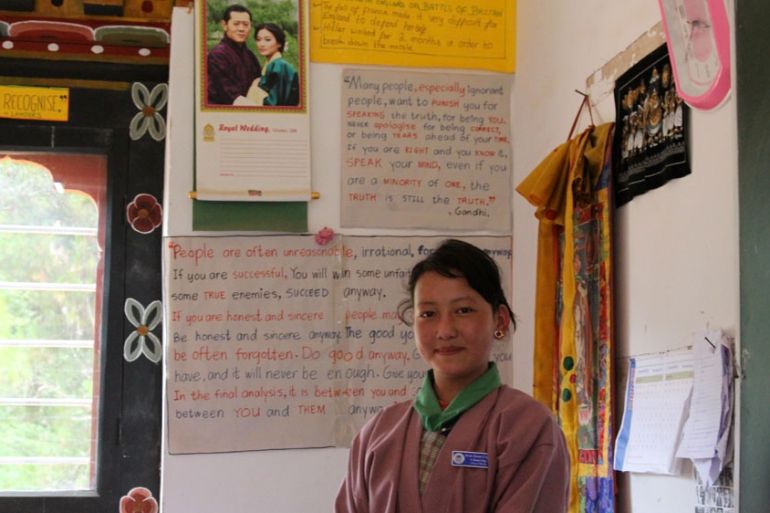 RECOGNISE.
ENGLAND OR BATTLE OF BRITAIN
The fall of France made it very difficult for
England to defend herself
Hitler waited for 2 months in order to
break down the morale
Royal Wedding
"Many people, especially ignorant
people, want to PUNISH you for
SPEAKING the truth, for being YOU.
NEVER apologise for being CORRECT,
or being YEARS ahead of your TIME.
If you are RIGHT and you KNOW it,
SPEAK your MIND, even if you
are a MINORITY of ONE, the
TRUTH is STILL the TRUTH."
Gandhi.
"People are often unreasonable, irrational, anyway.
If you are successful, You will win some
some TRUE enemies, SUCCEED anyway.
If you are honest and sincere people
Be honest and sincere anyway. The good you
be often forgotten. Do good anyway.
have, and it will never be enough. Give your
In the final analysis, it is between you and
between YOU and THEM